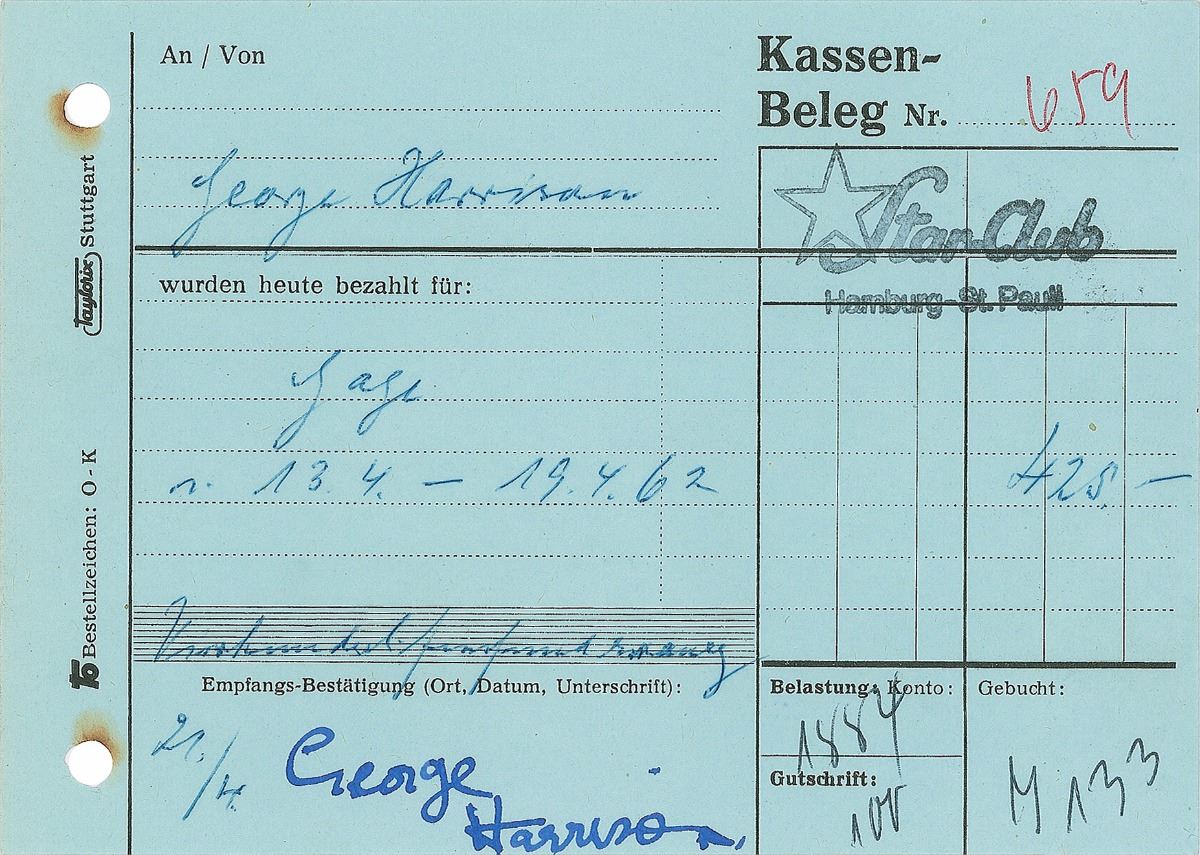 An / Von
Kassen-
Beleg Nr. 659
George Harrison
Star-Club
Hamburg-St. Pauli
wurden heute bezahlt für:
Gage
v. 13.4. – 19.4.62
425 –
Vierhundertfünfundzwanzig
Empfangs-Bestätigung (Ort, Datum, Unterschrift):
21./4.
George
Harrison
Belastung: Konto:
1884
Gutschrift:
100
Gebucht:
M 133
Taylorix Stuttgart
Bestellzeichen: O-K